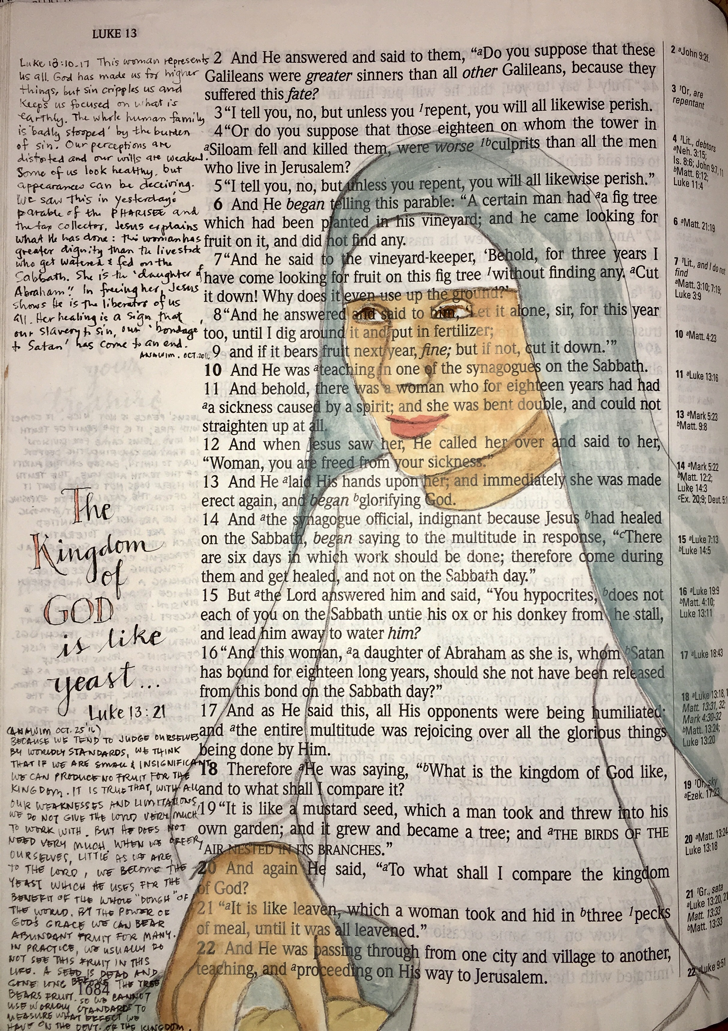 LUKE 13
Luke 13:10-17 This woman represents
us all. God has made us for higher
things, but sin cripples us and
keeps us focused on what is
earthly. The whole human family
is 'badly stopped' by the burden
of sin. Our perceptions are
distorted and our wills are weakened.
Some of us look healthy, but
appearances can be deceiving.
We saw this in yesterday's
parable of the PHARISEE and
the tax collector. Jesus explains
what He has done: the woman has
greater dignity than the livestock
who get watered & fed on the
Sabbath. She is the 'daughter of
Abraham'! In freeing her, Jesus
shows He is the liberator of us
all. Her healing is a sign that
our slavery to sin, our 'bondage
to Satan' has come to an end.
2 And He answered and said to them, “aDo you suppose that these
Galileans were greater sinners than all other Galileans, because they
suffered this fate?
3 “I tell you, no, but unless you 1repent, you will all likewise perish.
4 “Or do you suppose that those eighteen on whom the tower in
aSiloam fell and killed them, were worse 1bculprits than all the men
who live in Jerusalem?
5 “I tell you, no, but unless you repent, you will all likewise perish.”
6 And He began telling this parable: “A certain man had aa fig tree
which had been planted in his vineyard; and he came looking for
fruit on it, and did not find any.
7 “And he said to the vineyard-keeper, ‘Behold, for three years I
have come looking for fruit on this fig tree 1without finding any. aCut
it down! Why does it even use up the ground?’
8 “And he answered and said to him, ‘Let it alone, sir, for this year
too, until I dig around it and put in fertilizer;
9 and if it bears fruit next year, fine; but if not, cut it down.’”
10 And He was ateaching in one of the synagogues on the Sabbath.
11 And behold, there was a woman who for eighteen years had had
aa sickness caused by a spirit; and she was bent double, and could not
straighten up at all.
12 And when Jesus saw her, He called her over and said to her,
“Woman, you are freed from your sickness.”
13 And He alaid His hands upon her; and immediately she was made
erect again, and began bglorifying God.
14 And athe synagogue official, indignant because Jesus bhad healed
on the Sabbath, began saying to the multitude in response, “cThere
are six days in which work should be done; therefore come during
them and get healed, and not on the Sabbath day.”
15 But athe Lord answered him and said, “You hypocrites, bdoes not
each of you on the Sabbath untie his ox or his donkey from the stall,
and lead him away to water him?
16 “And this woman, aa daughter of Abraham as she is, whom bSatan
has bound for eighteen long years, should she not have been released
from this bond on the Sabbath day?”
17 And as He said this, all His opponents were being humiliated;
and athe entire multitude was rejoicing over all the glorious things
being done by Him.
18 Therefore aHe was saying, “bWhat is the kingdom of God like,
and to what shall I compare it?
19 “It is like a mustard seed, which a man took and threw into his
own garden; and it grew and became a tree; and aTHE BIRDS OF THE
AIR NESTED IN ITS BRANCHES.”
20 And again He said, “aTo what shall I compare the kingdom
of God?
21 “aIt is like leaven, which a woman took and hid in bthree 1pecks
of meal, until it was all leavened.”
22 And He was passing through from one city and village to another,
teaching, and aproceeding on His way to Jerusalem.
The
Kingdom
of
GOD
is like
yeast...
Luke 13:21
OCT. 25
BECAUSE WE TEND TO JUDGE OURSELVES
BY WORLDLY STANDARDS, WE THINK
THAT IF WE ARE SMALL & INSIGNIFICANT
WE CAN PRODUCE NO FRUIT FOR THE
KINGDOM. IT IS TRUE THAT, WITH ALL
OUR WEAKNESSES AND LIMITATIONS,
WE DO NOT GIVE THE LORD VERY MUCH
TO WORK WITH. BUT HE DOES NOT
NEED VERY MUCH. WHEN WE OFFER
OURSELVES, LITTLE AS WE ARE
TO THE LORD, WE BECOME THE
YEAST WHICH HE USES FOR THE
BENEFIT OF THE WHOLE "DOUGH" OF
THE WORLD. BY THE POWER OF
GOD'S GRACE WE CAN BEAR
ABUNDANT FRUIT FOR MANY.
IN PRACTICE, WE USUALLY DO
NOT SEE THIS FRUIT IN THIS
LIFE. A SEED IS DEAD AND
GONE LONG BEFORE THE TREE
BEARS FRUIT. SO WE CANNOT
USE WORLDLY STANDARDS TO
MEASURE WHAT EFFECT WE
HAVE ON THE DEVT. OF THE KINGDOM.
1684
2 aJohn 9:2f.
3 1Or, are
repentant
4 1Lit., debtors
aNeh. 3:15;
Is. 8:6; John 9:7, 11
bMatt. 6:12;
Luke 11:4
6 aMatt. 21:19
7 1Lit., and I do not
find
aMatt. 3:10; 7:19;
Luke 3:9
10 aMatt. 4:23
11 aLuke 13:16
13 aMark 5:23
bMatt. 9:8
14 aMark 5:22
bMatt. 12:2;
Luke 14:3
cEx. 20:9; Deut. 5:1
15 aLuke 7:13
bLuke 14:5
16 aLuke 19:9
bMatt. 4:10;
Luke 13:11
17 aLuke 18:43
18 aLuke 13:18,
bMatt. 13:31, 32;
Mark 4:30-32
cMatt. 13:24;
Luke 13:20
19
aEzek. 17:23
20 aMatt. 13:24
Luke 13:18
21 1Gr., sata
aLuke 13:20, 21
Matt. 13:33
bMatt. 13:33
22 aLuke 9:51